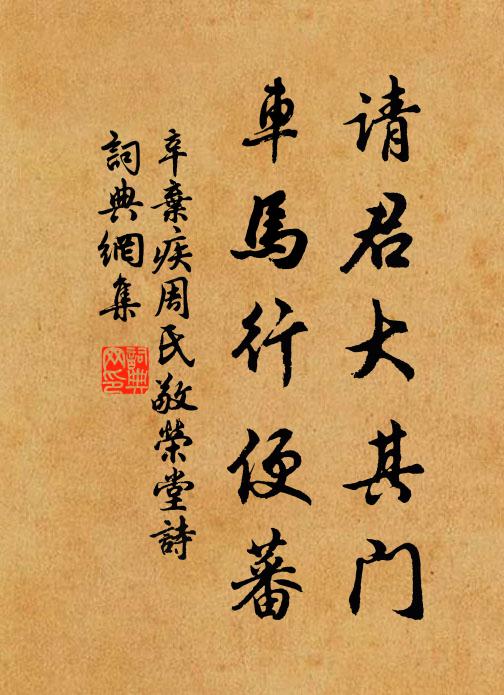 请君大其门
車馬行便蕃
辛棄疾周氏敬榮堂詩
詞典網集
詞典网印